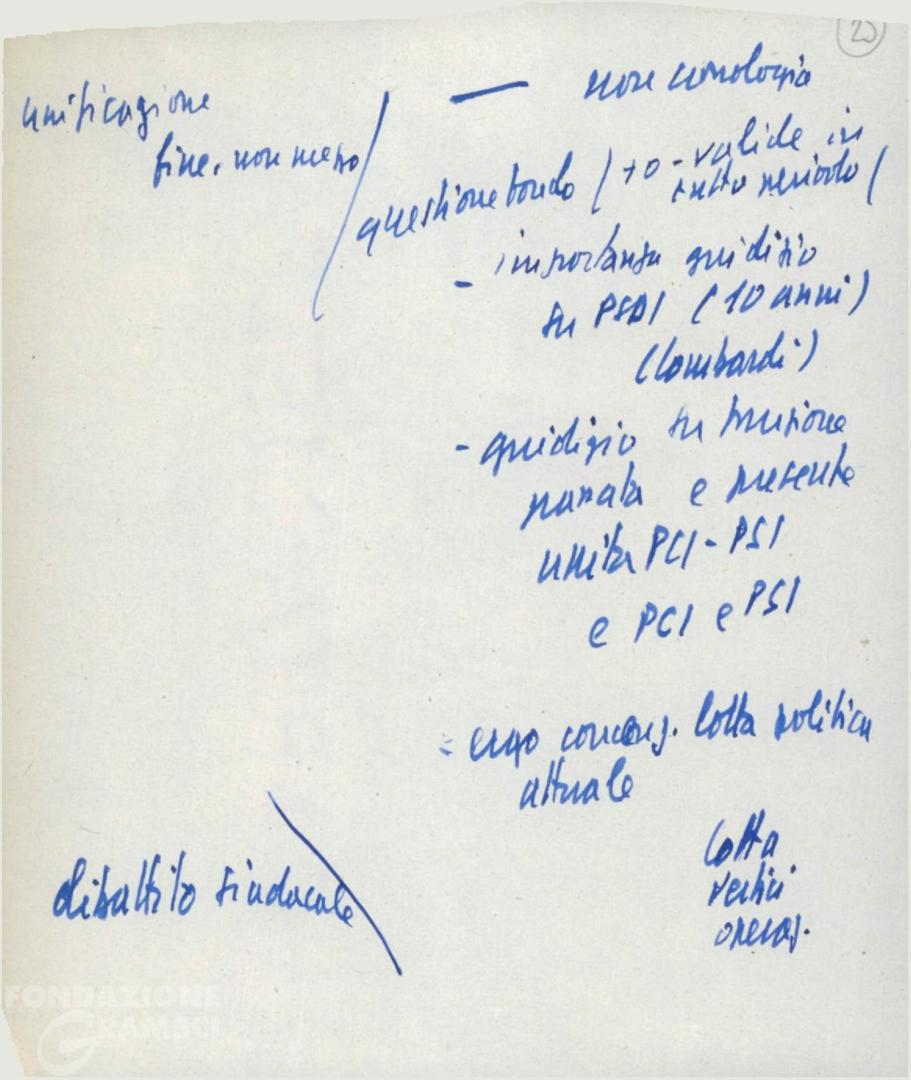 25
unificazione
fine, non mezzo
— non cronologia
questione fondo (+ o - valide in
tutto periodo)
- importanza giudizio
su PSDI (10 anni)
(Lombardi)
- giudizio su funzione
passata e presente
unità PCI - PSI
e PCI e PSI
= ergo conseg. lotta politica
attuale
lotta
vertici
operaj.
dibattito sindacale
FONDAZIONE
GRAMSCI